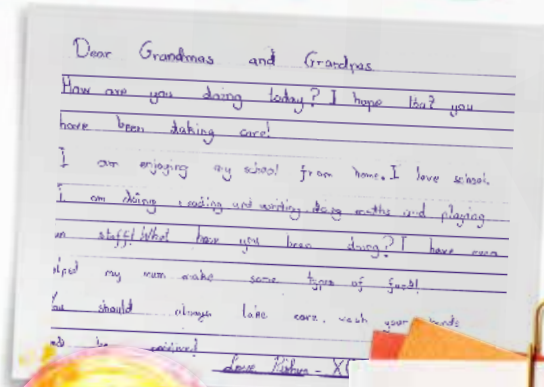 Dear Grandmas and Grandpas
How are you doing today? I hope that you
have been taking care!
I am enjoying my school from home. I love school.
I am doing reading and writing, doing maths and playing
stuff! What have you been doing? I have even
my mum make some types of food!
should always take care, wash your hands
be
Love